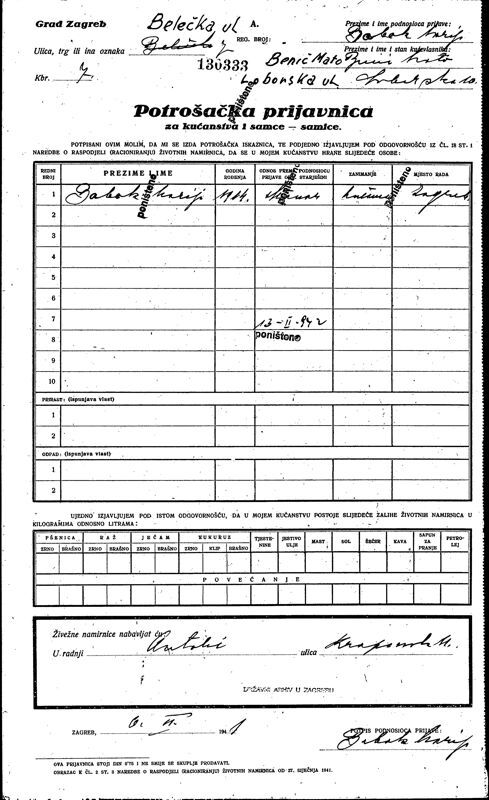 Grad Zagreb
Belečka ul
A.
REG. BROJ:
130333
Ulica, trg ili ina oznaka
Kbr. 7
Prezime i ime podnosioca prijave:
Prezime i ime i stan kućevlasnika:
Benić Mato
Loborska ul
poništeno
Potrošačka prijavnica
za kućanstva i samce — samice.
POTPISANI OVIM MOLIM, DA MI SE IZDA POTROŠAČKA ISKAZNICA, TE PODJEDNO IZJAVLJUJEM POD ODGOVORNOŠĆU IZ ČL. 18 ST. 1
NAREDBE O RASPODJELI (RACIONIRANJU) ŽIVOTNIH NAMIRNICA, DA SE U MOJEM KUĆANSTVU HRANE SLIJEDEĆE OSOBE:
REDNI BROJ PREZIME I IME GODINA ROĐENJA ODNOS PREMA PODNOSIOCU PRIJAVE STARJEŠINI ZANIMANJE MJESTO RADA
1 1904. Zagreb
poništeno poništeno poništeno
2
3
4
5
6
7 13-II-942
8 poništeno
9
10
PRIRAST: (ispunjava vlast)
1
2
ODPAD: (ispunjava vlast)
1
2
UJEDNO IZJAVLJUJEM POD ISTOM ODGOVORNOŠĆU, DA U MOJEM KUĆANSTVU POSTOJE SLIJEDEĆE ZALIHE ŽIVOTNIH NAMIRNICA U
KILOGRAMIMA ODNOSNO LITRAMA:
PŠENICA RAŽ JEČAM KUKURUZ TJESTENINE JESTIVO ULJE MAST SOL ŠEĆER KAVA SAPUN ZA PRANJE PETROLEJ
ZRNO BRAŠNO ZRNO BRAŠNO ZRNO BRAŠNO ZRNO KLIP BRAŠNO
POVEĆANJE
Živežne namirnice nabavljat ću
U radnji Antolić ulica
DRŽAVNI ARHIV U ZAGREBU
ZAGREB, 6. VI. 1941
POTPIS PODNOSIOCA PRIJAVE:
OVA PRIJAVNICA STOJI DIN 0'75 I NE SMIJE SE SKUPLJE PRODAVATI.
OBRAZAC K ČL. 2 ST. 3 NAREDBE O RASPODJELI (RACIONIRANJU) ŽIVOTNIH NAMIRNICA OD 27. SIJEČNJA 1941.